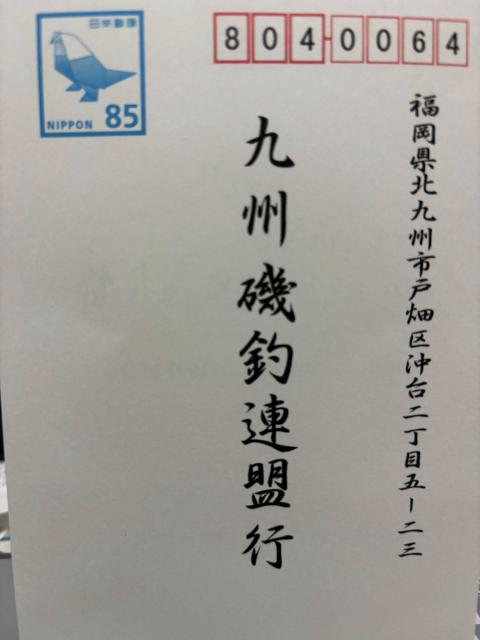 日本郵便
NIPPON 85
804-0064
福岡県北九州市戸畑区沖台二丁目五-二三
九州磯釣連盟行